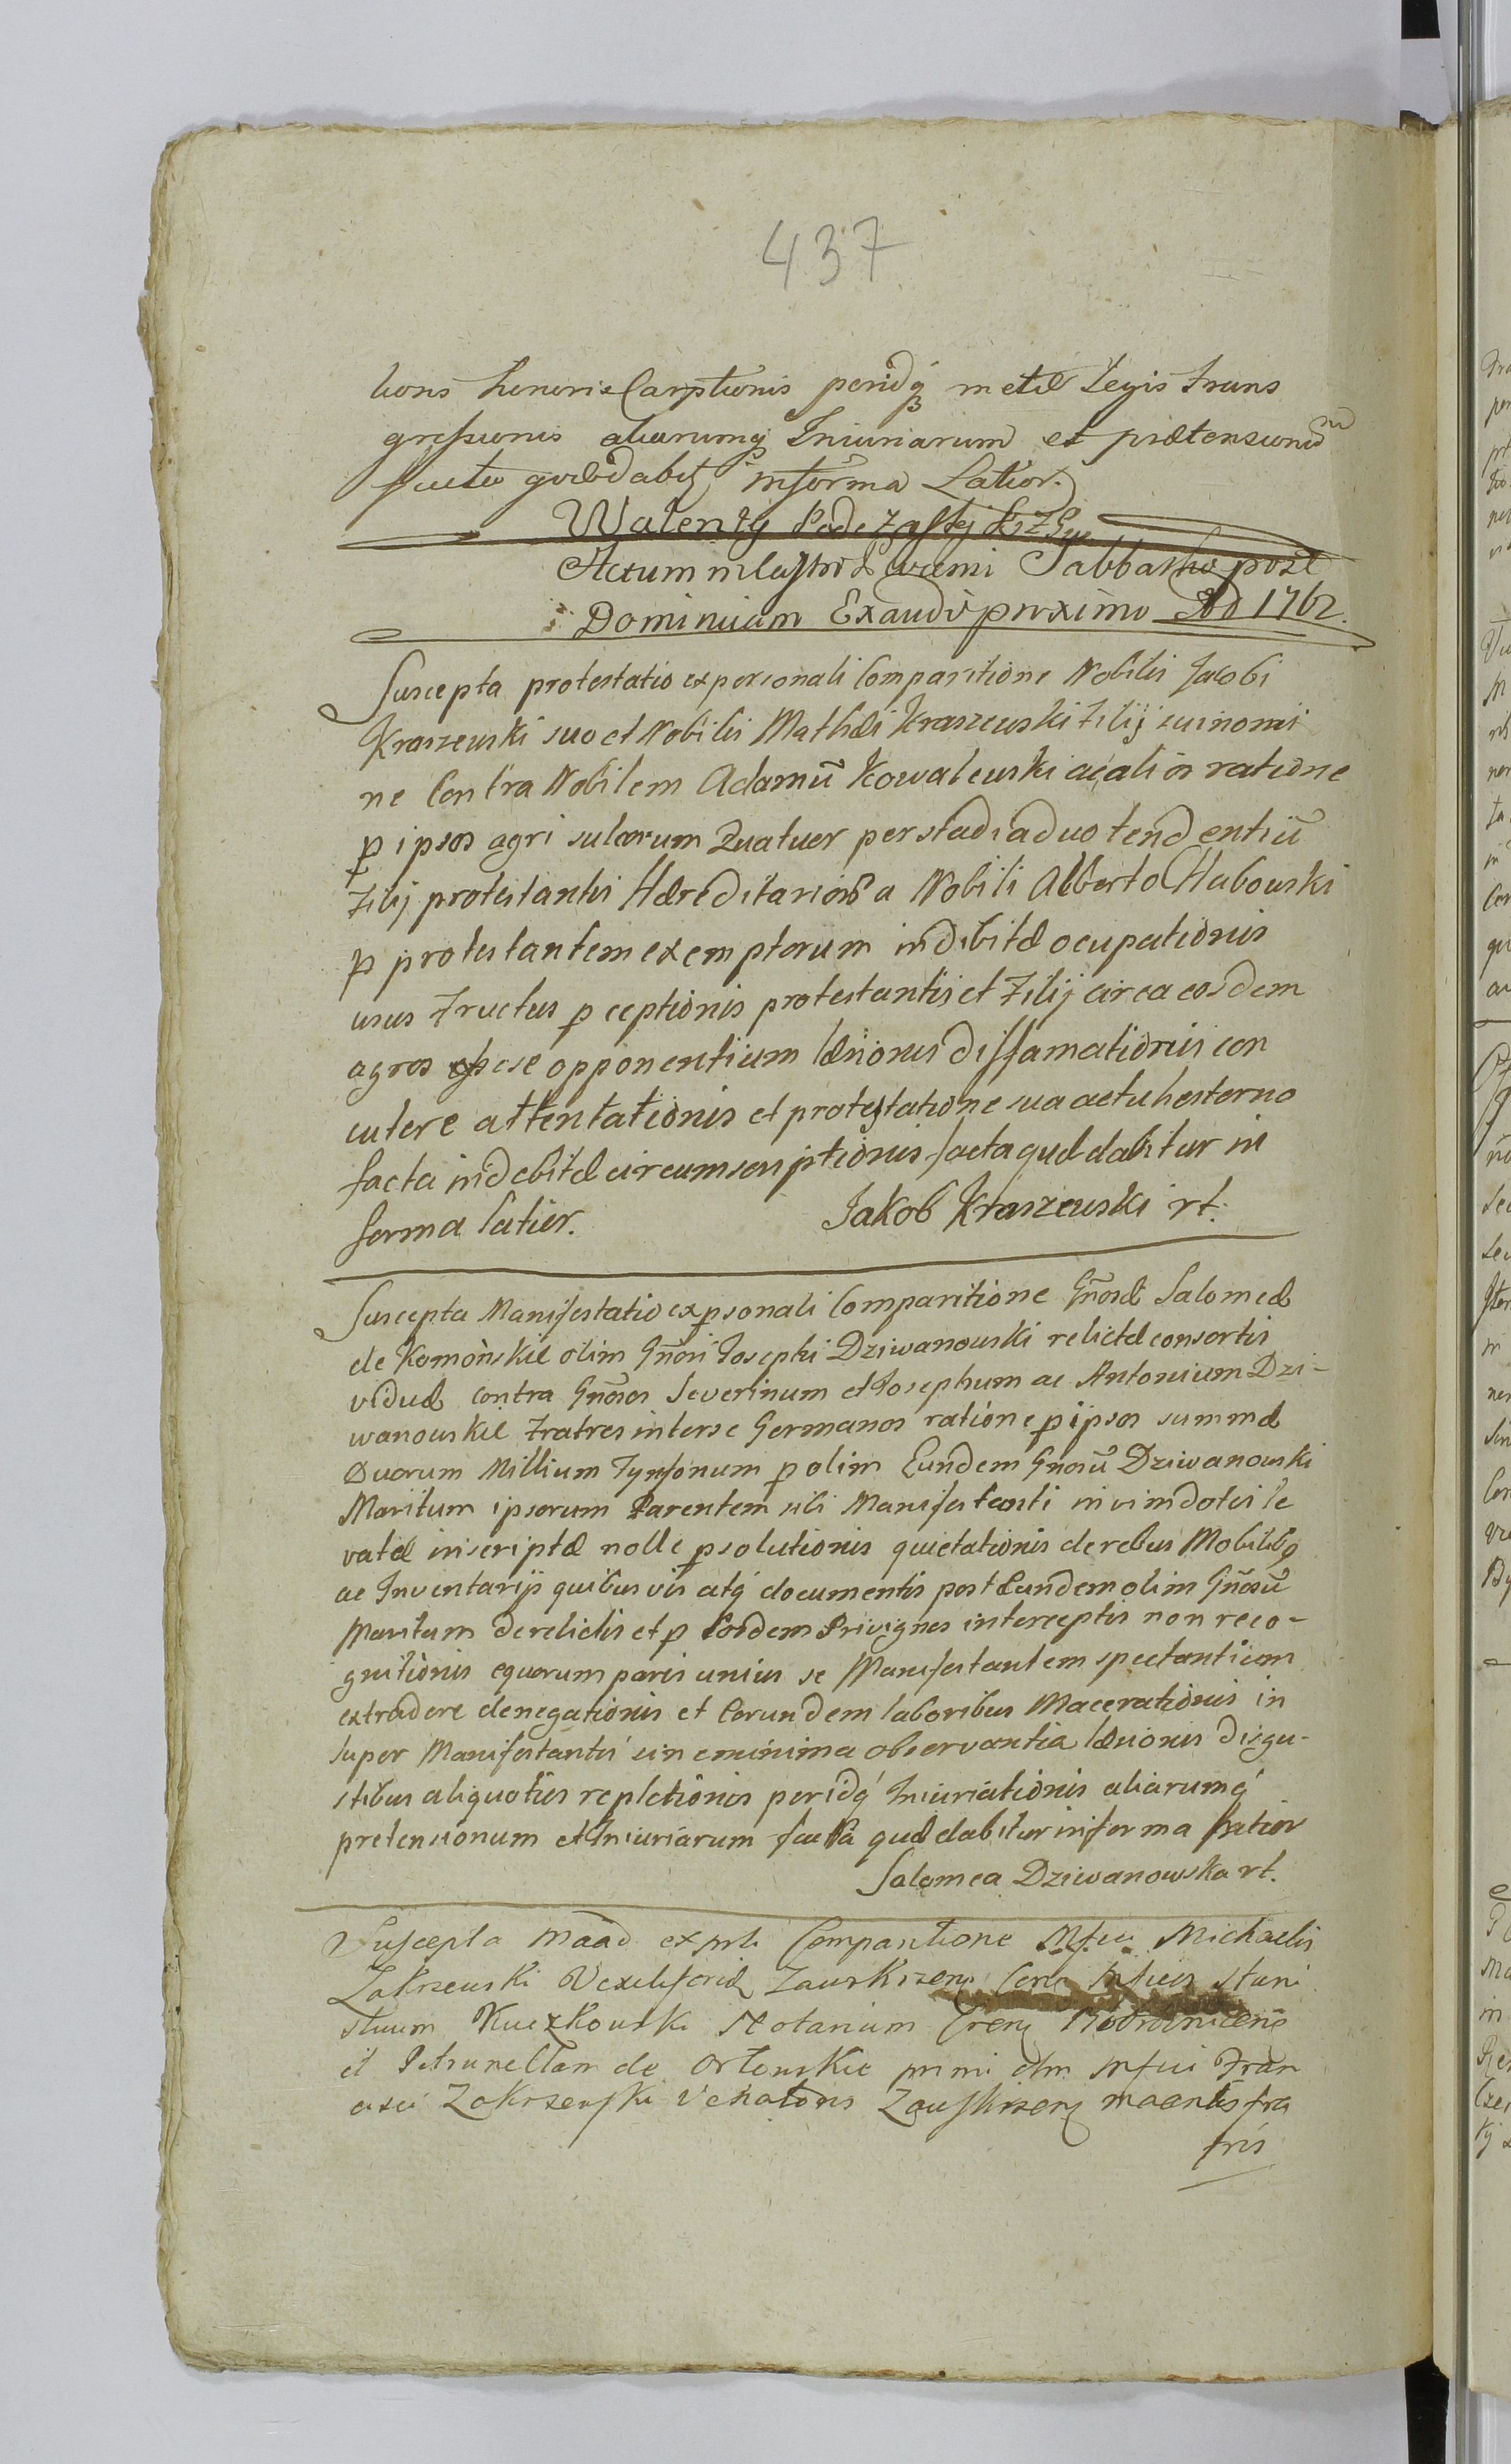 437
tionis honoris Carptionis peridq metæ Legis trans
gressionis aliarumq Iniuriarum et prætensionum
facta quæ dabitz in forma Latior.
Walenty
Actum in Castro Sabbatho post
Dominicam Exaudi proximo Ad 1762.
Suscepta protestatio ex personali Comparitione Nobilis Jacobi
Kraszewski suo et Nobilis Mathæi Kraszewski Filij sui nomi
ne Contra Nobilem Adamū Kowalewski ac alios ratione
p ipsos agri sulcorum Quatuor per stadia duo tendentiū
Filij protestantis Hæreditariorum a Nobili Alberto Hubowski
p protestantem exemptorum indebitæ ocupationis
usus Fructus p ceptionis protestantis et Filij circa eosdem
agros se opponentium læsionis diffamationis con
cutere attentationis et protestatione sua actu hesterno
facta indebitæ circumscriptionis facta quæ dabitur in
forma latior. Jakob Kraszewski rt.
Suscepta Manifestatio ex psonali Comparitione Gnosæ Salomeæ
de Komońskie olim Gnosi Josephi Dziwanowski relictæ consortis
viduæ contra Gnosos Severinum et Josephum ac Antonium Dzi-
wanowskie Fratres inter se Germanos ratione p ipsos summæ
Duorum Millium Tynfonum p olim Eundem Gnosū Dziwanowski
Maritum ipsorum Parentem sibi Manifestanti in vim dotis le
vatæ inscriptæ nolle psolutionis quietationis de rebus Mobilibq
ac Inventarij quibusvis atq documentis post Eundem olim Gnosū
Maritum derelictis et p Eosdem Privignos interceptis non reco-
gnitionis equorum paris unius se Manifestantem spectantium
extradere denegationis et Eorundem laboribus Macerationis in
super Manifestantis sine minima observantia læsionis disgu-
stibus aliquoties repletionis peridq Iniuriationis aliarumq
pretensionum et Iniuriarum facta quæ dabitur in forma latior
Salomea Dziwanowska rt.
Suscepta Comparitione Mfici Michaelis
Zakrzewski Vexiliferidæ Zauskrzens Mficos Stani
sluum Kuczkowski Notarium
et Petrunellam de Orłowskie primi olm Mfici Fran
cisci Zakrzewski Venatoris Zauskrzens maentis fra
tris